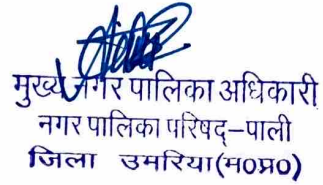 मुख्य नगर पालिका अधिकारी
नगर पालिका परिषद्–पाली
जिला उमरिया(म०प्र०)